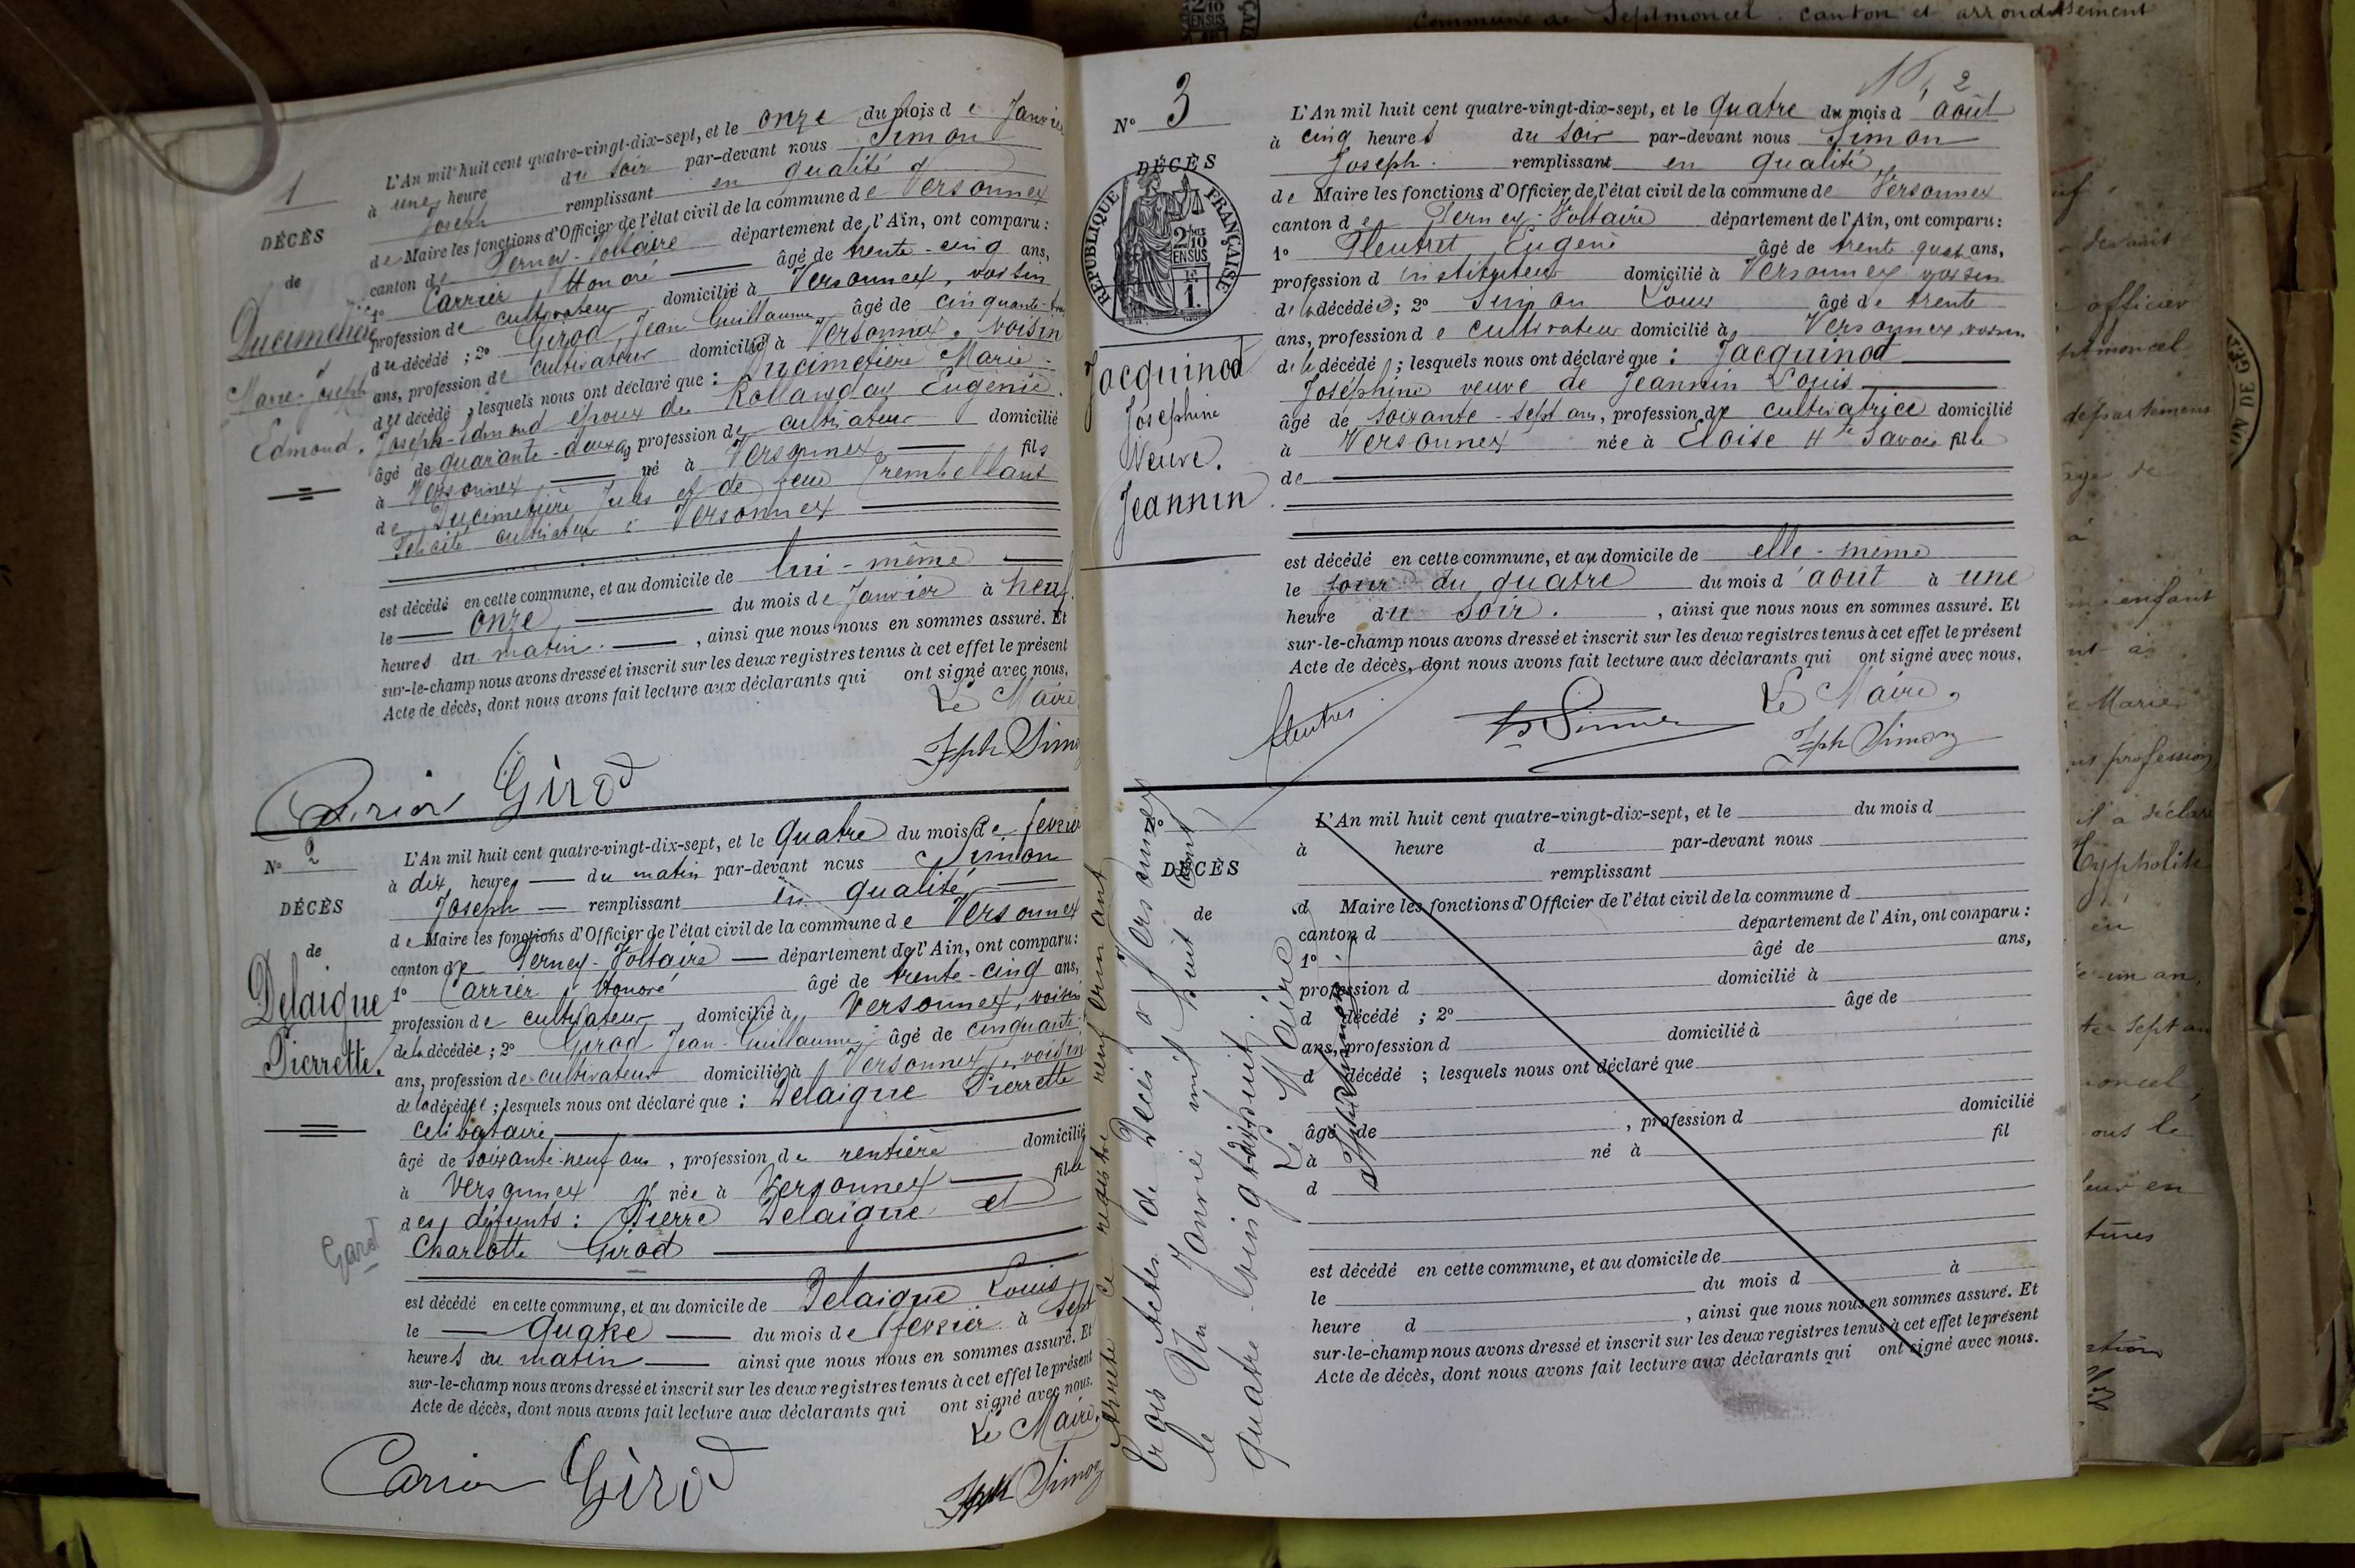 1
DÉCÈS
de
Ducimetière
Marie-Joseph
Edmond.
L'An mil huit cent quatre-vingt-dix-sept, et le onze du mois de Janvier
à une heure du soir par-devant nous Simon
Joseph remplissant en qualité
de Maire les fonctions d'Officier de l'état civil de la commune de Versonnex
canton de Ferney-Voltaire département de l'Ain, ont comparu :
1º Carrier Honoré âgé de trente-cinq ans,
profession de cultivateur domicilié à Versonnex, voisin
du décédé ; 2º Girod Jean Guillaume âgé de cinquante-
ans, profession de cultivateur domicilié à Versonnex, voisin
du décédé ; lesquels nous ont déclaré que : Ducimetière Marie-
Joseph-Edmond époux de Rollanday Eugénie.
âgé de quarante-deux ans profession de cultivateur domicilié
à Versonnex né à Versonnex fils
de Ducimetière Jules et de feue Trembellant
Félicité cultivateur à Versonnex
est décédé en cette commune, et au domicile de lui-même
le onze du mois de Janvier à neuf
heures du matin. , ainsi que nous nous en sommes assuré. Et
sur-le-champ nous avons dressé et inscrit sur les deux registres tenus à cet effet le présent
Acte de décès, dont nous avons fait lecture aux déclarants qui ont signé avec nous.
Le Maire
Carrier Girod Jph Simon
Nº 2
DÉCÈS
de
Delaigue
Pierrette.
Garot
L'An mil huit cent quatre-vingt-dix-sept, et le quatre du mois de fevrier
à dix heures du matin par-devant nous Simon
Joseph remplissant en qualité
de Maire les fonctions d'Officier de l'état civil de la commune de Versonnex
canton de Ferney-Voltaire département de l'Ain, ont comparu :
1º Carrier Honoré âgé de trente-cinq ans,
profession de cultivateur domicilié à Versonnex, voisin
de la décédée ; 2º Girod Jean-Guillaume âgé de cinquante-
ans, profession de cultivateur domicilié à Versonnex, voisin
de la décédée ; lesquels nous ont déclaré que : Delaigue Pierrette
célibataire,
âgé de soixante-neuf ans , profession de rentière domicilié
à Versonnex née à Versonnex fille
des défunts : Pierre Delaigue et
Charlotte Girod
est décédé en cette commune, et au domicile de Delaigue Louis
le quatre du mois de fevrier à sept
heures du matin ainsi que nous nous en sommes assuré. Et
sur-le-champ nous avons dressé et inscrit sur les deux registres tenus à cet effet le présent
Acte de décès, dont nous avons fait lecture aux déclarants qui ont signé avec nous.
Le Maire.
Carrier Girod Jph Simon
2
Nº 3
DÉCÈS
RÉPUBLIQUE FRANÇAISE
2/10
EN SUS
1F.
Jacquinod
Josephine
Veuve.
Jeannin
L'An mil huit cent quatre-vingt-dix-sept, et le quatre du mois d'août
à cinq heures du soir par-devant nous Simon
Joseph. remplissant en qualité
de Maire les fonctions d'Officier de l'état civil de la commune de Versonnex
canton de Ferney-Voltaire département de l'Ain, ont comparu :
1º Fleutret Eugène âgé de trente quatre ans,
profession d'instituteur domicilié à Versonnex voisin
de la décédée ; 2º Simon Louis âgé de trente
ans, profession de cultivateur domicilié à Versonnex voisin
de la décédé ; lesquels nous ont déclaré que : Jacquinod
Joséphine veuve de Jeannin Louis
âgé de soixante-sept ans, profession de cultivatrice domicilié
à Versonnex née à Eloise Hte Savoie fille
de
est décédé en cette commune, et au domicile de elle-même
le jour du quatre du mois d'août à une
heure du soir. , ainsi que nous nous en sommes assuré. Et
sur-le-champ nous avons dressé et inscrit sur les deux registres tenus à cet effet le présent
Acte de décès, dont nous avons fait lecture aux déclarants qui ont signé avec nous.
Le Maire,
Simon Jph Simon
Arrêté ce registre renfermant
trois actes de Décès à Versonnex
le un Janvier mil huit cent
quatre-vingt dix huit.
Le Maire
Jph Simon
DÉCÈS
de
L'An mil huit cent quatre-vingt-dix-sept, et le du mois d
à heure d par-devant nous
remplissant
d Maire les fonctions d'Officier de l'état civil de la commune d
canton d département de l'Ain, ont comparu :
1º âgé de ans,
profession d domicilié à
d décédé ; 2º âgé de
ans, profession d domicilié à
d décédé ; lesquels nous ont déclaré que
âgé de , profession d domicilié
à né à fil
d
est décédé en cette commune, et au domicile de
le du mois d à
heure d , ainsi que nous nous en sommes assuré. Et
sur-le-champ nous avons dressé et inscrit sur les deux registres tenus à cet effet le présent
Acte de décès, dont nous avons fait lecture aux déclarants qui ont signé avec nous.
Commune de Septmoncel. canton et arrondissement
officier
département
enfant
Marie
profession
il a déclaré
Hyppolite
en
un an,
sept an